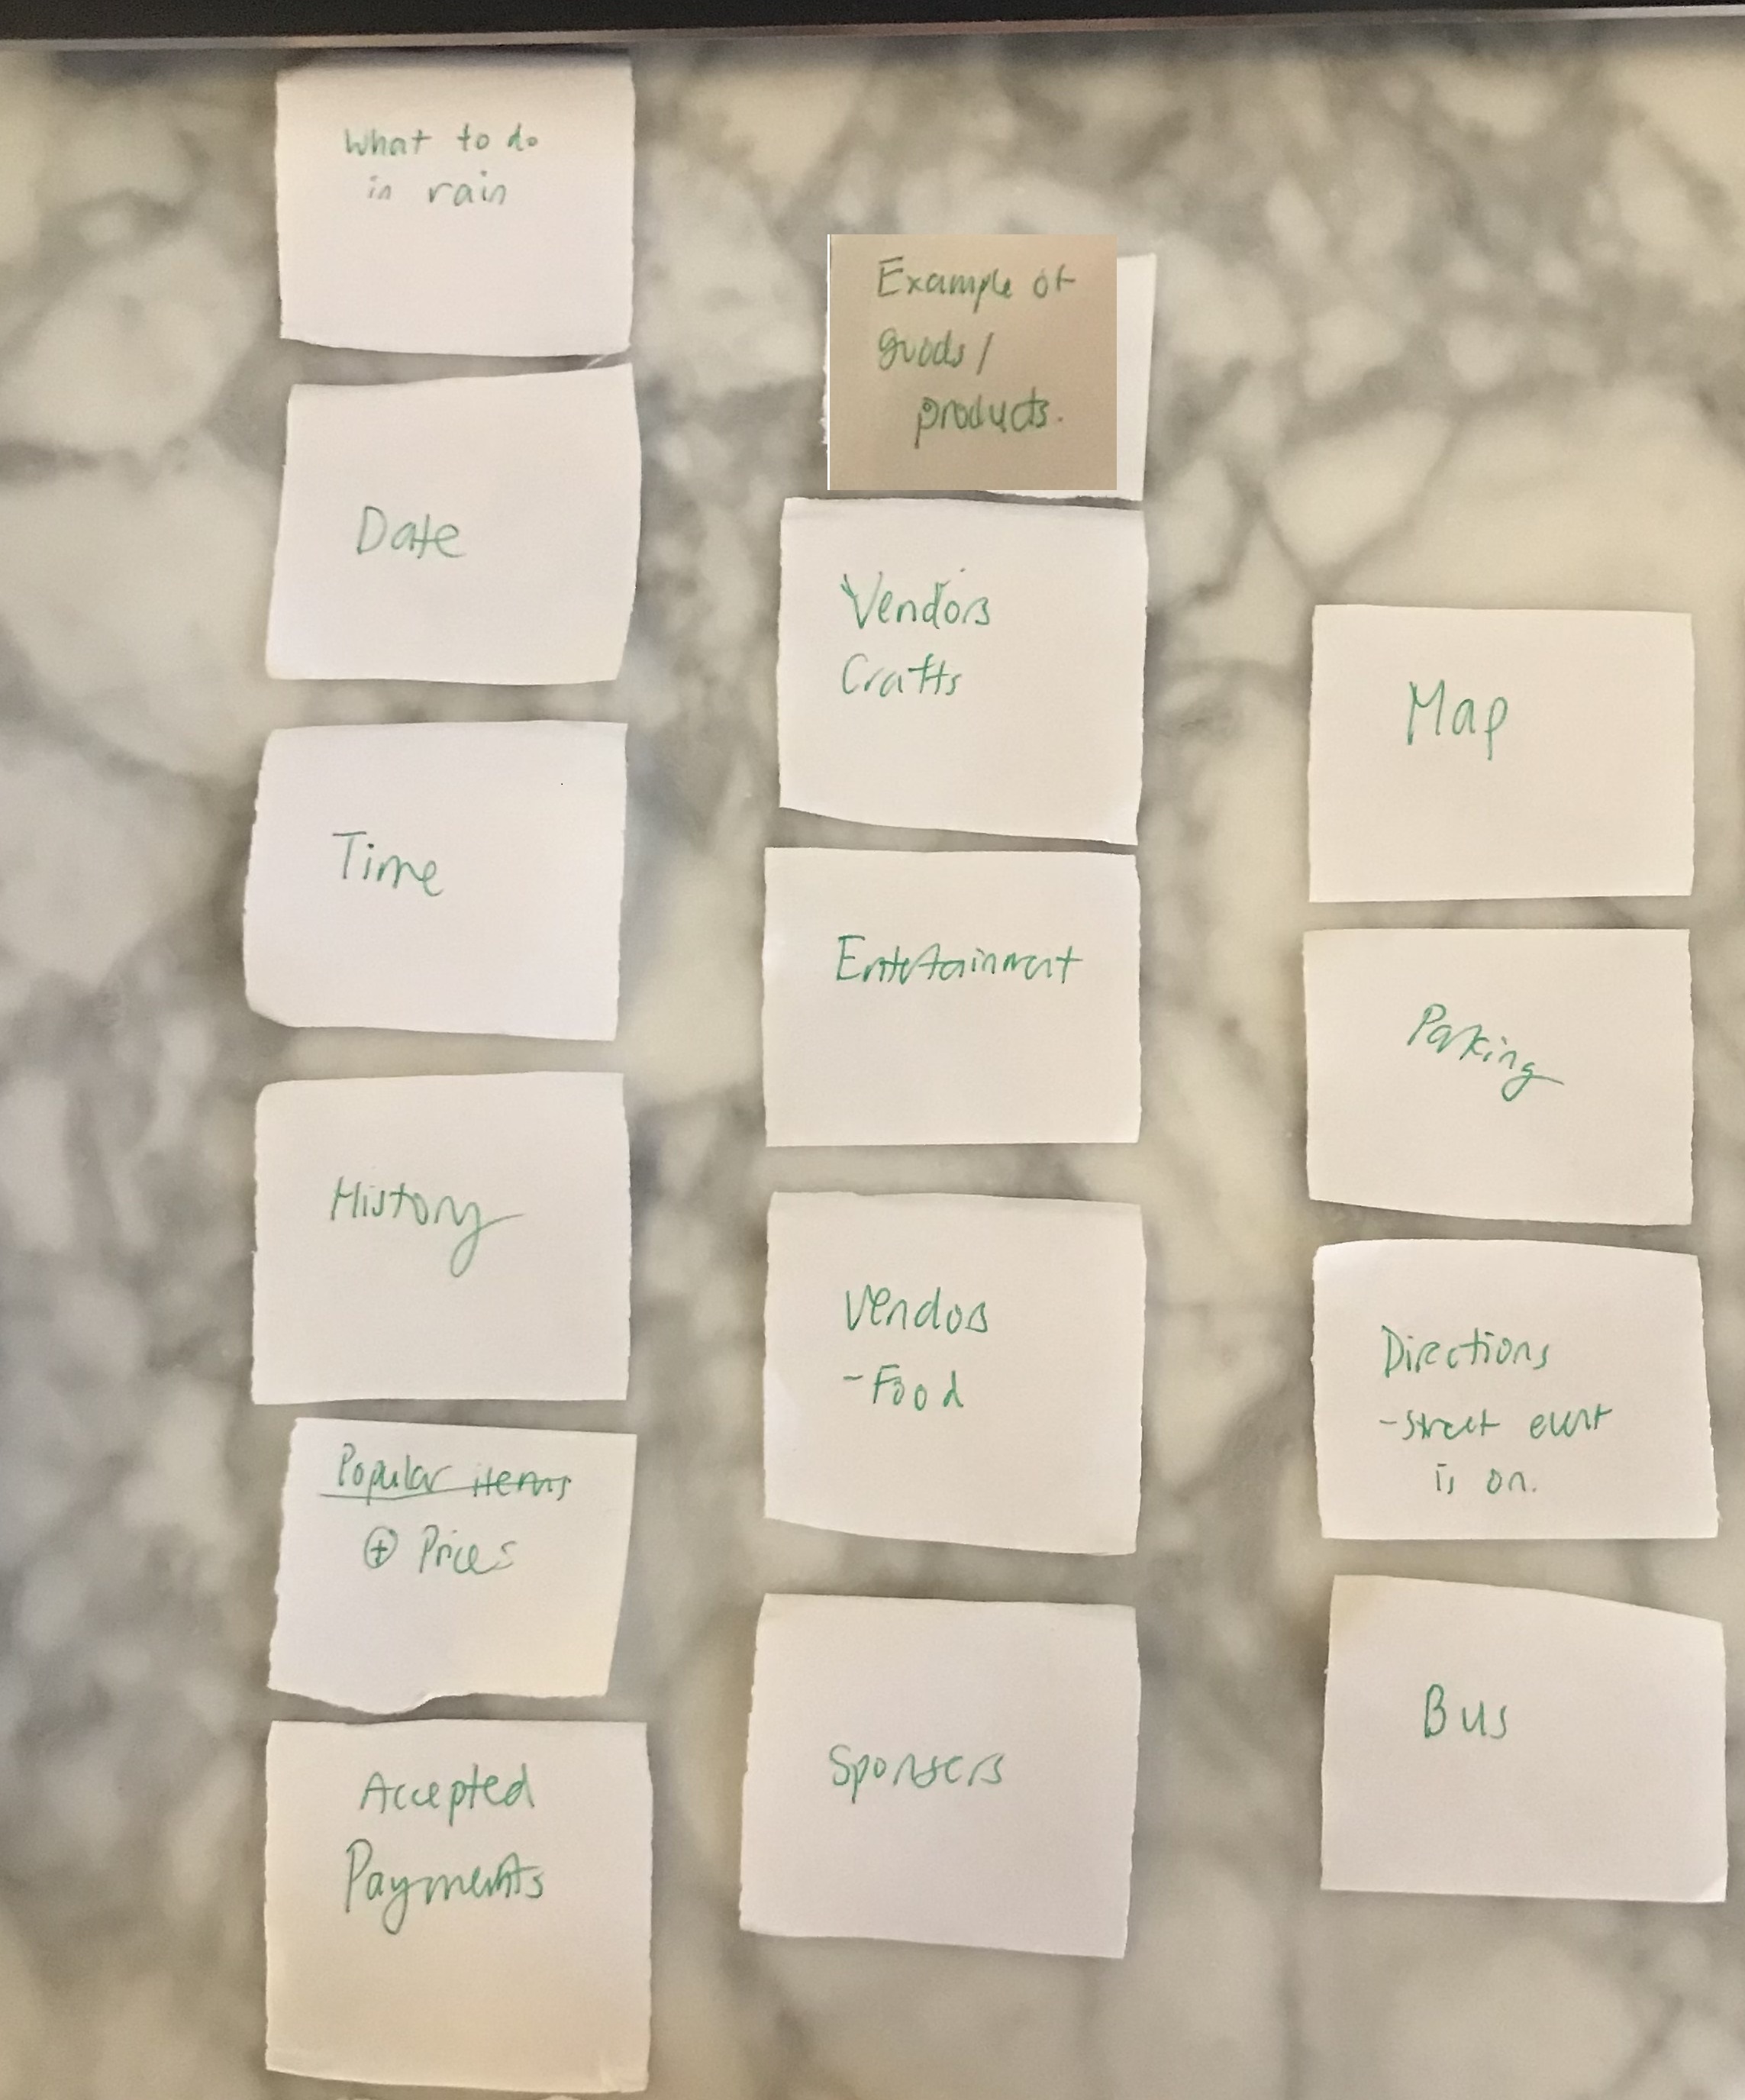 What to do
in rain
Date
Time
History
Popular items
⊕ Prices
Accepted
Payments
Example of
goods/
products.
Vendors
Crafts
Entertainment
Vendors
-Food
Sponsers
Map
Parking
Directions
-street event
is on.
Bus